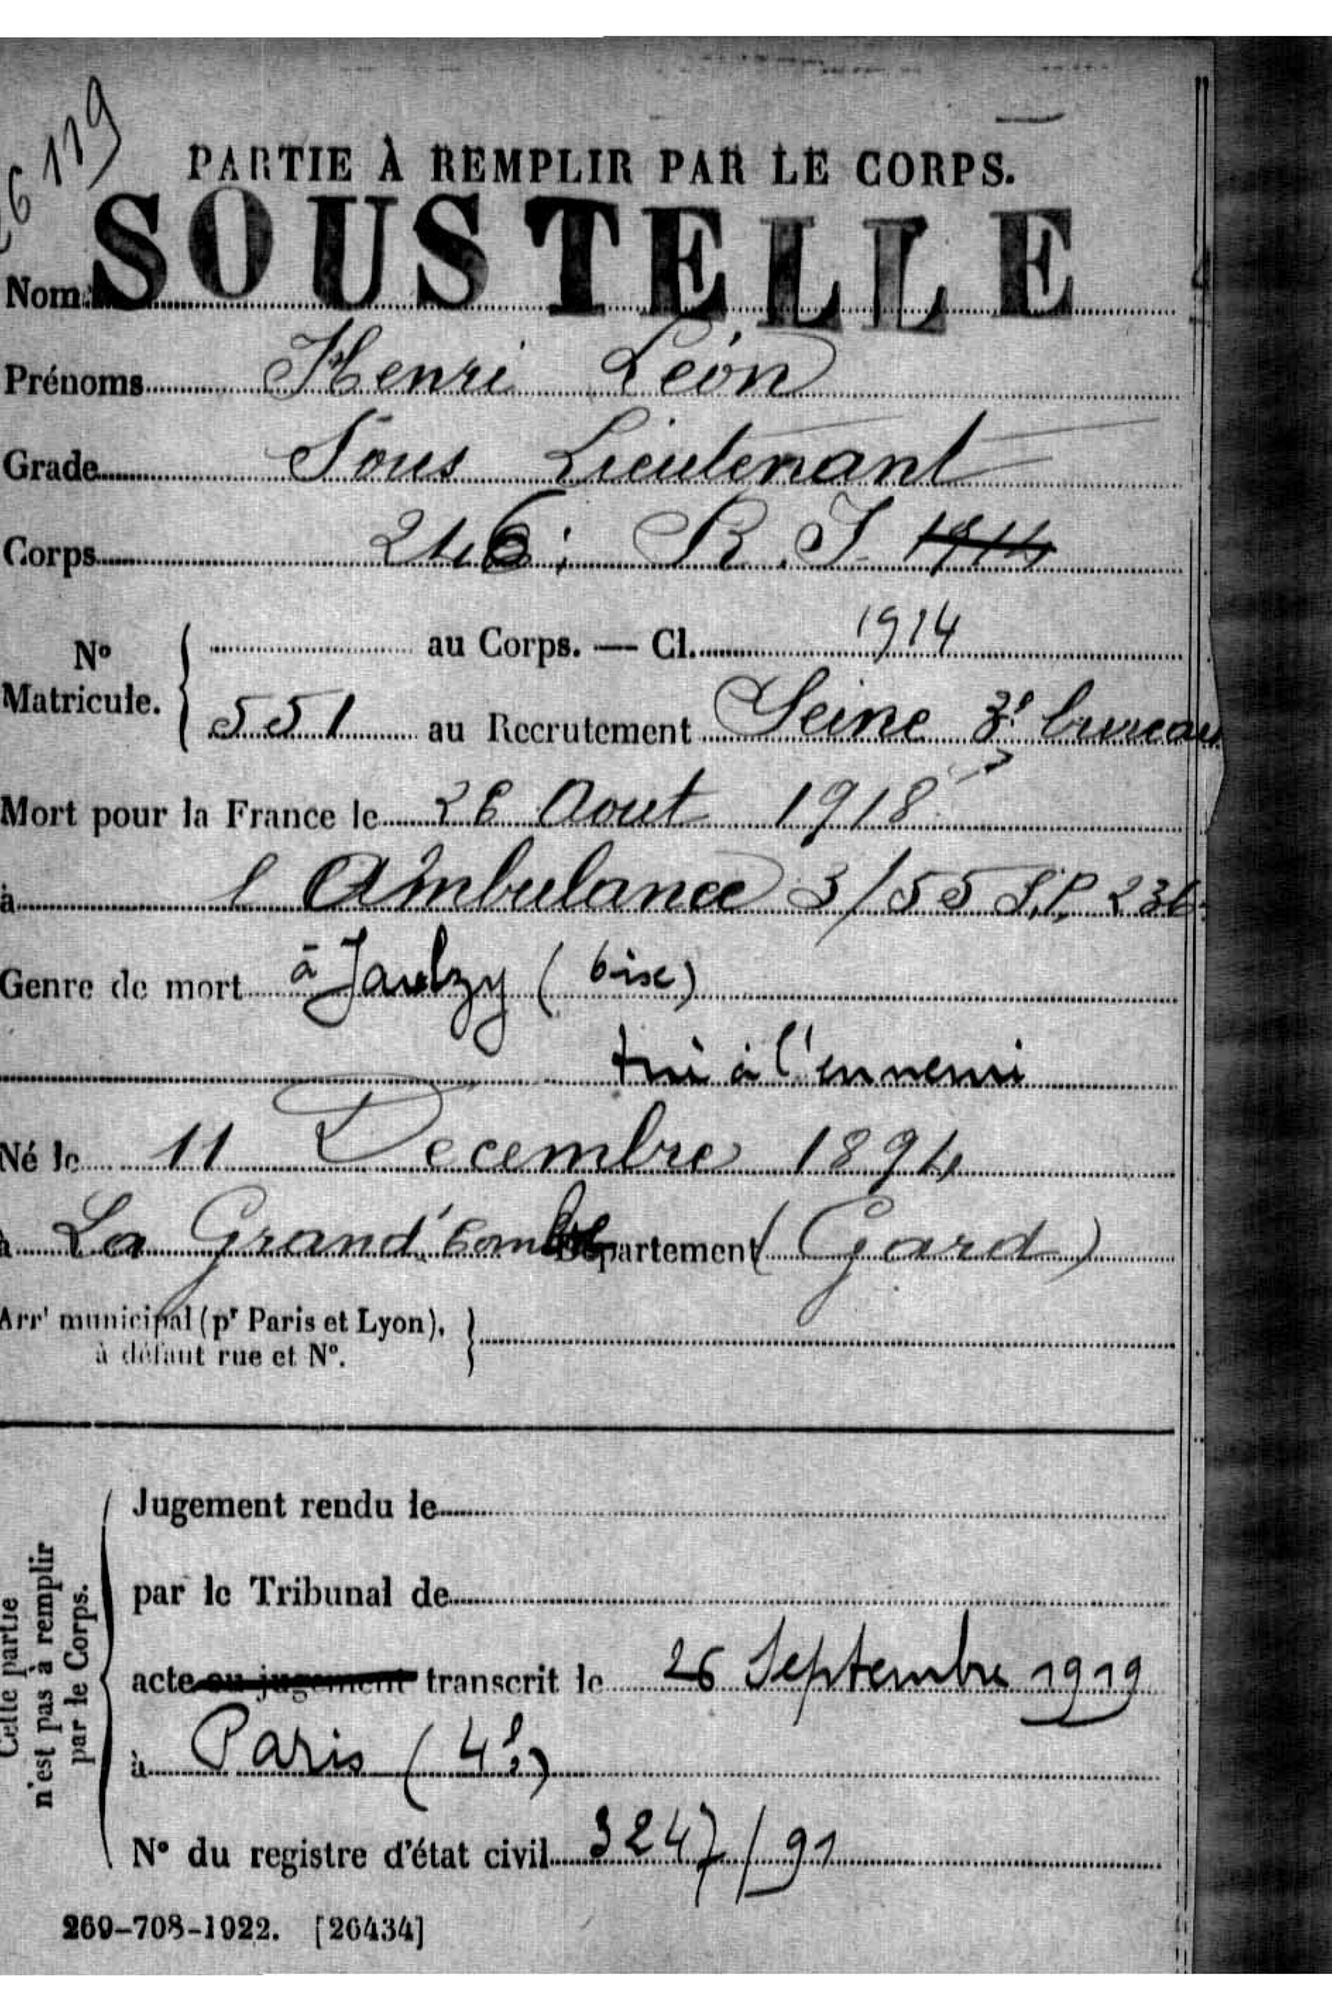 6 119
PARTIE À REMPLIR PAR LE CORPS.
Nom SOUSTELLE
Prénoms Henri Léon
Grade Sous Lieutenant
Corps 246e R. I. 1914
Nº Matricule. au Corps. — Cl. 1914
551 au Recrutement Seine 3e bureau
Mort pour la France le 28 Aout 1918
à l Ambulance 3/55 S.P. 236
Genre de mort à Jaulzy (oise)
tué à l'ennemi
Né le 11 Decembre 1894
à La Grand'Combe Département (Gard)
Arrt municipal (pr Paris et Lyon),
à défaut rue et Nº.
Jugement rendu le
par le Tribunal de
acte ou jugement transcrit le 26 Septembre 1919
à Paris (4e)
Nº du registre d'état civil 3247/91
Cette partie
n'est pas à remplir
par le Corps.
269-708-1922. [26434]